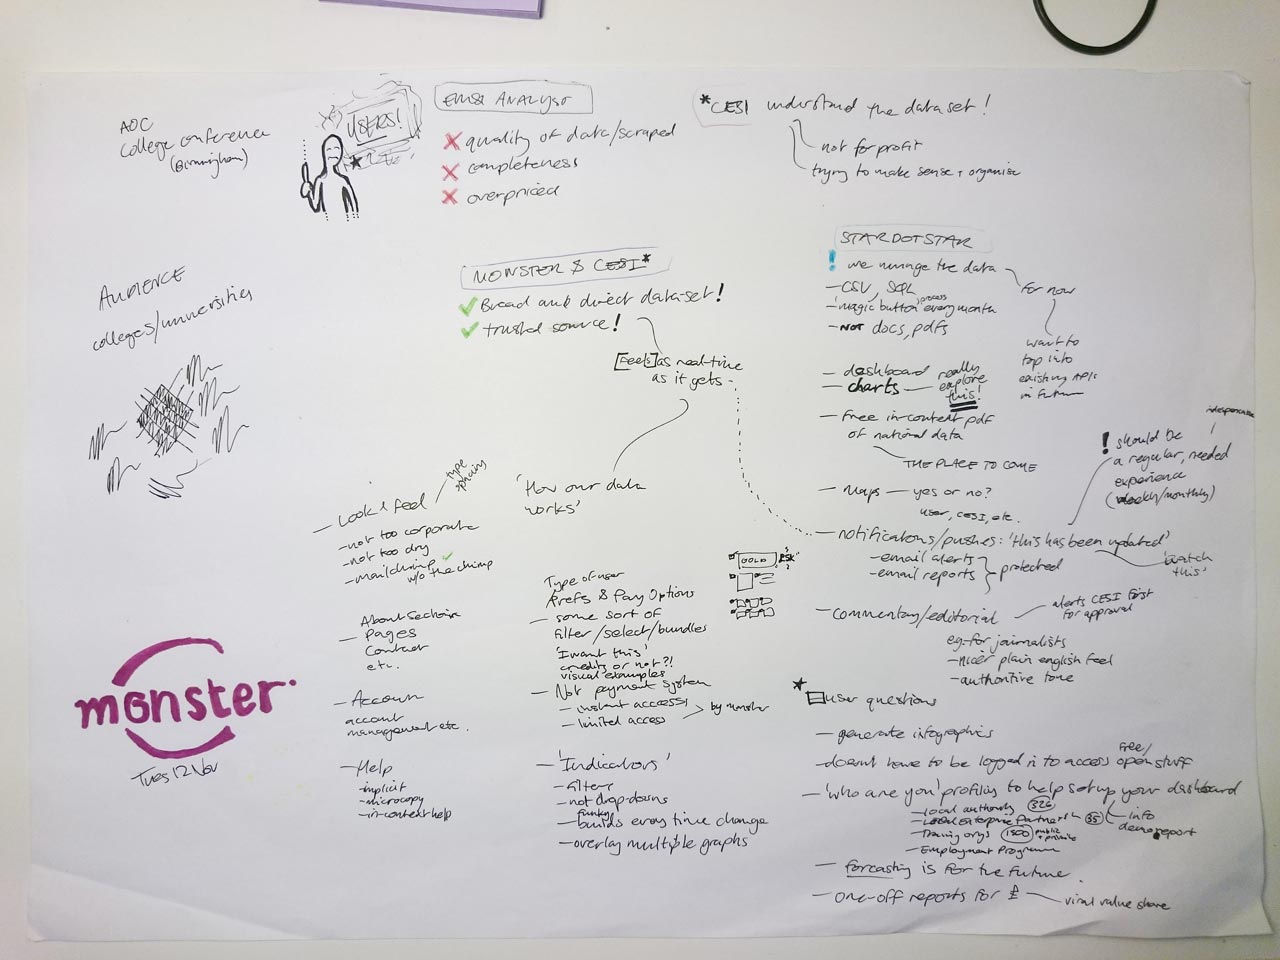 AOC
College conference
(Birmingham)
USERS!
EMSI ANALYST
quality of data/scraped
completeness
overpriced
*CESI understand the dataset!
not for profit
trying to make sense + organise
AUDIENCE
colleges/universities
MONSTER & CESI*
Broad and direct data-set!
trusted source!
[Feels] as real-time
as it gets -
STARDOTSTAR
! we manage the data
for now
- CSV, SQL
process
- 'magic button' every month
- NOT docs, pdfs
want to
tap into
existing APIs
in future
- dashboard
- charts — really
explore
this!
- Free in-context pdf
of national data
THE PLACE TO COME
- Maps — yes or no?
user, CESI, etc.
! should be
a regular, needed
experience
(weekly/monthly)
- notifications/pushes: 'this has been updated'
- email alerts
- email reports
protected
'watch
this'
- commentary/editorial
alerts CESI first
for approval
eg. for journalists
- nicer plain english feel
- authoritive tone
- Look & feel
type
spacing
- not too corporate
- not too dry
- mailchimp
w/o the chimp
'How our data
works'
About Section
- Pages
Contact
etc.
- Account
account
management etc.
- Help
- implicit
- microcopy
- in-context help
Type of user
Prefs & Pay Options
- some sort of
filter/select/bundles
'I want this'
credits or not?!
visual examples
- Not payment system
- instant access
- limited access
by monster
GOLD
- 'Indicators'
- filter
- not drop-downs
funky
- builds every time change
- overlay multiple graphs
* user questions
- generate infographics
- doesn't have to be logged in to access free/
open stuff
- 'who are you' profiling to help set up your dashboard
- Local authority 326
- Local Enterprise Partnership 39
- Training orgs 1500 public
+ private
- Employment Programme
info
demo report
- forcasting is for the future
- one-off reports for £ — viral value share
monster
Tues 12 Nov